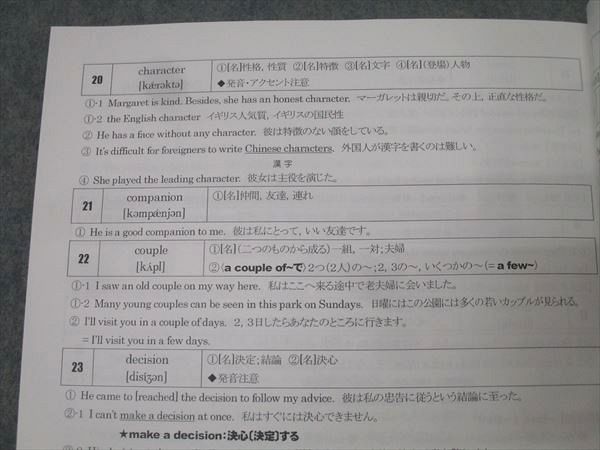 20 character [kǽrəktə] ①[名]性格, 性質 ②[名]特徴 ③[名]文字 ④[名](登場)人物
◆発音・アクセント注意
①-1 Margaret is kind. Besides, she has an honest character. マーガレットは親切だ。その上, 正直な性格だ。
①-2 the English character イギリス人気質, イギリスの国民性
② He has a face without any character. 彼は特徴のない顔をしている。
③ It's difficult for foreigners to write Chinese characters. 外国人が漢字を書くのは難しい。
漢字
④ She played the leading character. 彼女は主役を演じた。
21 companion [kəmpǽnjən] ①[名]仲間, 友達, 連れ
① He is a good companion to me. 彼は私にとって, いい友達です。
22 couple [kʌ́pl] ①[名](二つのものから成る)一組, 一対;夫婦
②〈a couple of~で〉2つ(2人)の~;2, 3の~, いくつかの~(=a few~)
①-1 I saw an old couple on my way here. 私はここへ来る途中で老夫婦に会いました。
①-2 Many young couples can be seen in this park on Sundays. 日曜にはこの公園には多くの若いカップルが見られる。
② I'll visit you in a couple of days. 2, 3日したらあなたのところに行きます。
= I'll visit you in a few days.
23 decision [disíʒən] ①[名]決定;結論 ②[名]決心
◆発音注意
① He came to [reached] the decision to follow my advice. 彼は私の忠告に従うという結論に至った。
②-1 I can't make a decision at once. 私はすぐには決心できません。
★make a decision:決心〔決定〕する